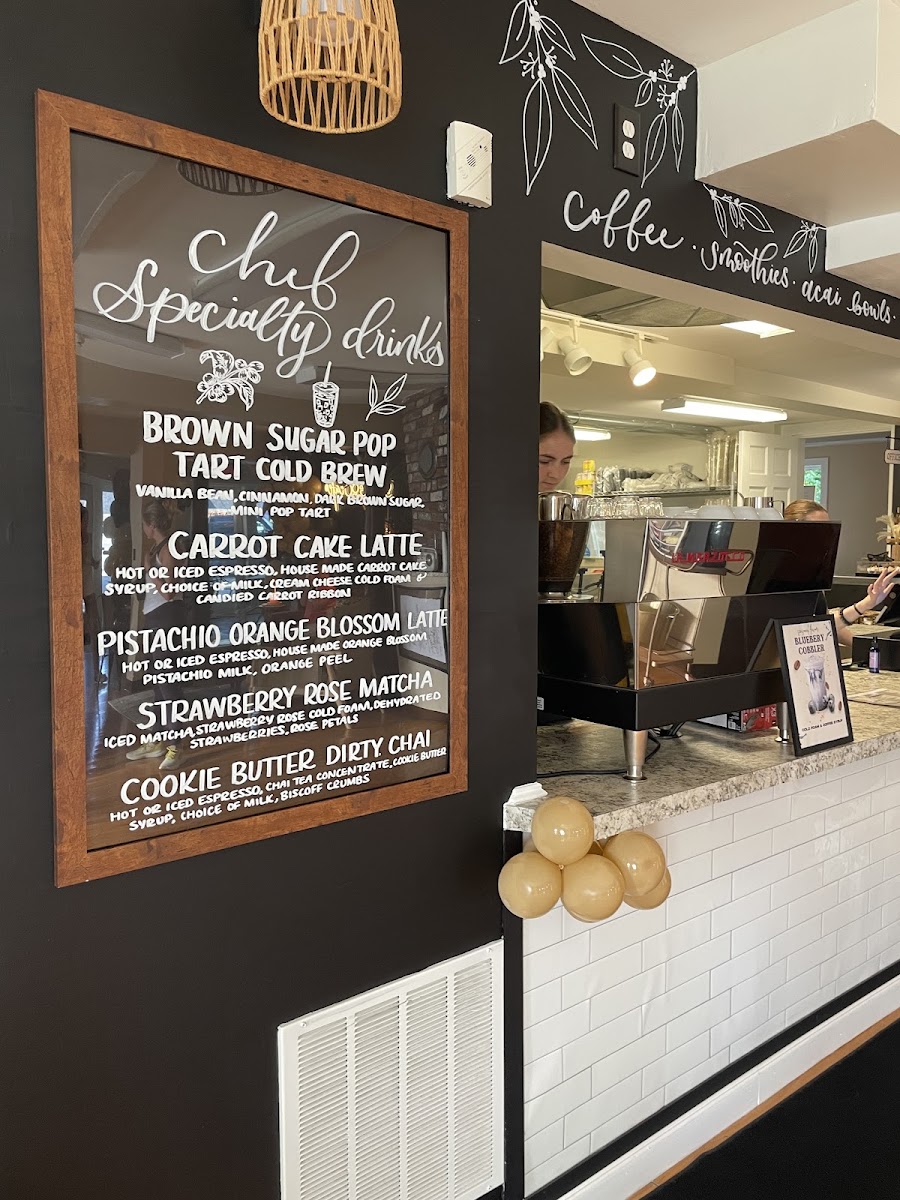 Chub
Specialty drinks
BROWN SUGAR POP
TART COLD BREW
VANILLA BEAN, CINNAMON, DARK BROWN SUGAR,
MINI POP TART
CARROT CAKE LATTE
HOT OR ICED ESPRESSO, HOUSE MADE CARROT CAKE
SYRUP, CHOICE OF MILK, CREAM CHEESE COLD FOAM &
CANDIED CARROT RIBBON
PISTACHIO ORANGE BLOSSOM LATTE
HOT OR ICED ESPRESSO, HOUSE MADE ORANGE BLOSSOM,
PISTACHIO MILK, ORANGE PEEL
STRAWBERRY ROSE MATCHA
ICED MATCHA, STRAWBERRY ROSE COLD FOAM, DEHYDRATED
STRAWBERRIES, ROSE PETALS
COOKIE BUTTER DIRTY CHAI
HOT OR ICED ESPRESSO, CHAI TEA CONCENTRATE, COOKIE BUTTER
SYRUP, CHOICE OF MILK, BISCOFF CRUMBS
Coffee · Smoothies · acai bowls ·
BLUEBERY
COBBLER
COLD FOAM & COFFEE SYRUP